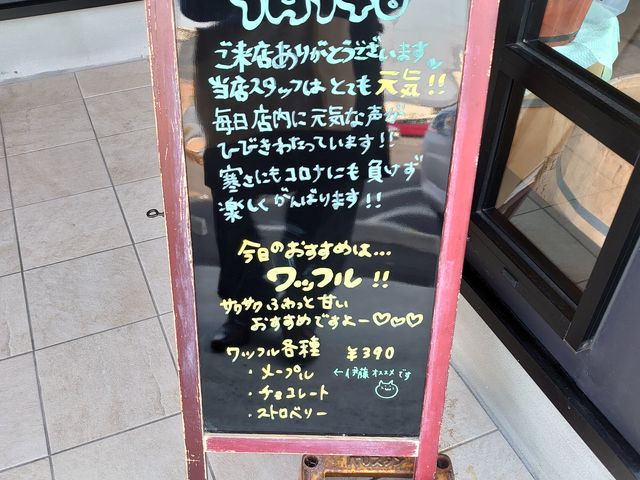 ご来店ありがとうございます♥
当店スタッフはとても元気!!
毎日店内に元気な声が
ひびきわたっています!!
寒さにもコロナにも負けず
楽しくがんばります!!
今日のおすすめは...
ワッフル!!
サクサクふわっと甘い
おすすめですよー♡♡♡
ワッフル各種 ¥390
・メープル ←伊藤オススメです
・チョコレート
・ストロベリー